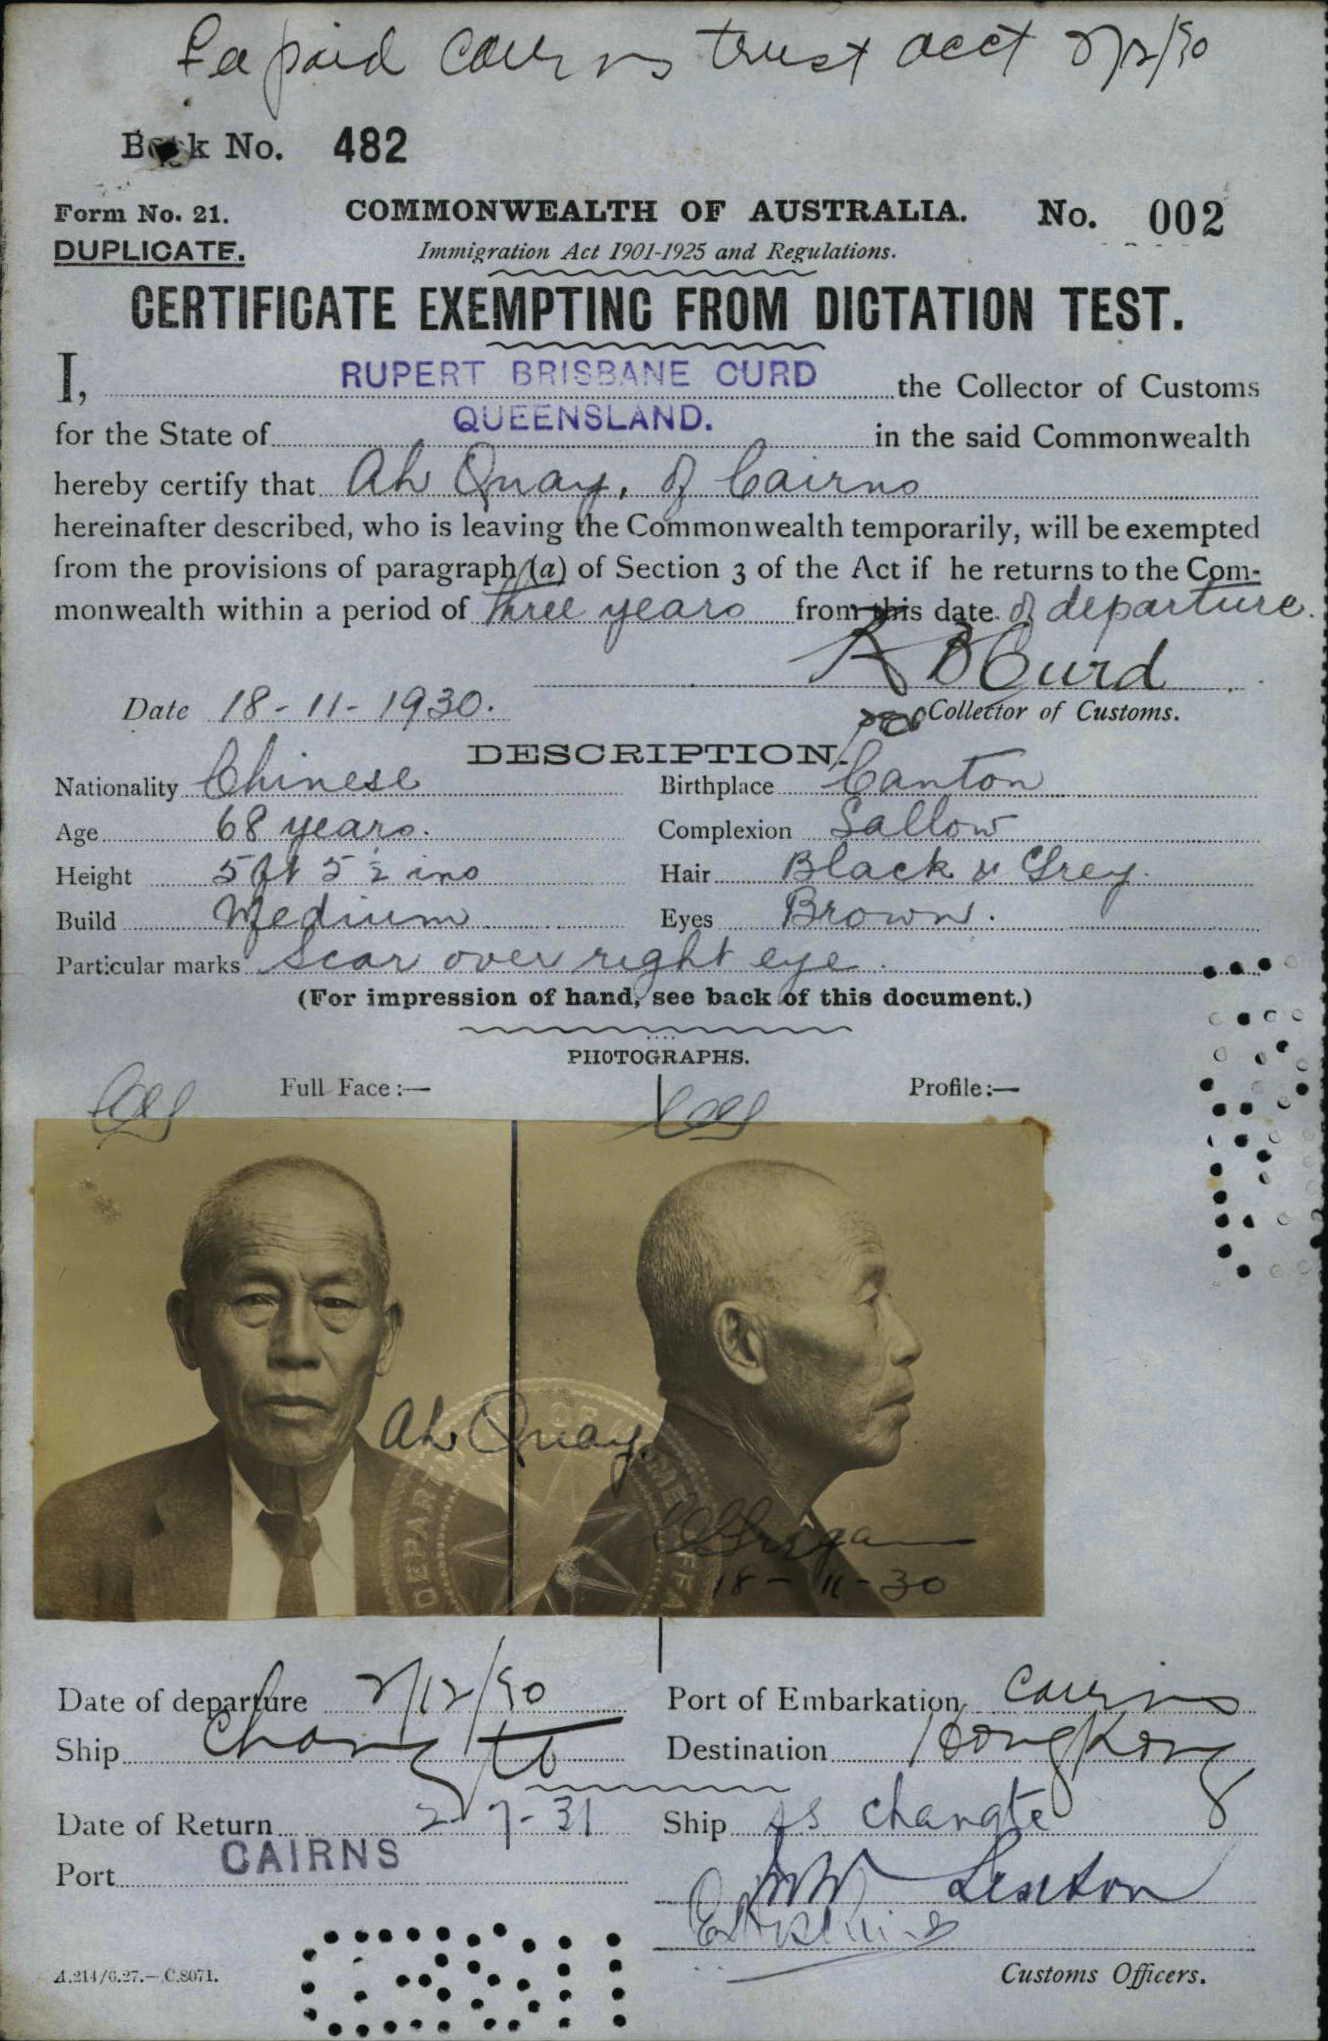 Fee paid Cairns trust acct 2/12/30
Book No. 482
Form No. 21.
COMMONWEALTH OF AUSTRALIA.
No. 002
DUPLICATE.
Immigration Act 1901-1925 and Regulations.
CERTIFICATE EXEMPTING FROM DICTATION TEST.
I, RUPERT BRISBANE CURD the Collector of Customs
for the State of QUEENSLAND. in the said Commonwealth
hereby certify that Ah Quay, of Cairns
hereinafter described, who is leaving the Commonwealth temporarily, will be exempted
from the provisions of paragraph (a) of Section 3 of the Act if he returns to the Com-
monwealth within a period of three years from this date of departure.
R B Curd
Date 18-11-1930.
Collector of Customs.
DESCRIPTION.
Nationality Chinese
Birthplace Canton
Age 68 years.
Complexion Sallow
Height 5 ft 5 ½ ins
Hair Black & Grey.
Build Medium
Eyes Brown.
Particular marks Scar over right eye.
(For impression of hand, see back of this document.)
PHOTOGRAPHS.
Full Face :—
Profile :—
Ah Quay.
18-11-30
Date of departure 2/12/30
Port of Embarkation Cairns
Ship Changte
Destination Hong Kong
Date of Return 2-7-31
Ship SS Changte
Port CAIRNS
A.214/6.27.—C.8071.
Customs Officers.